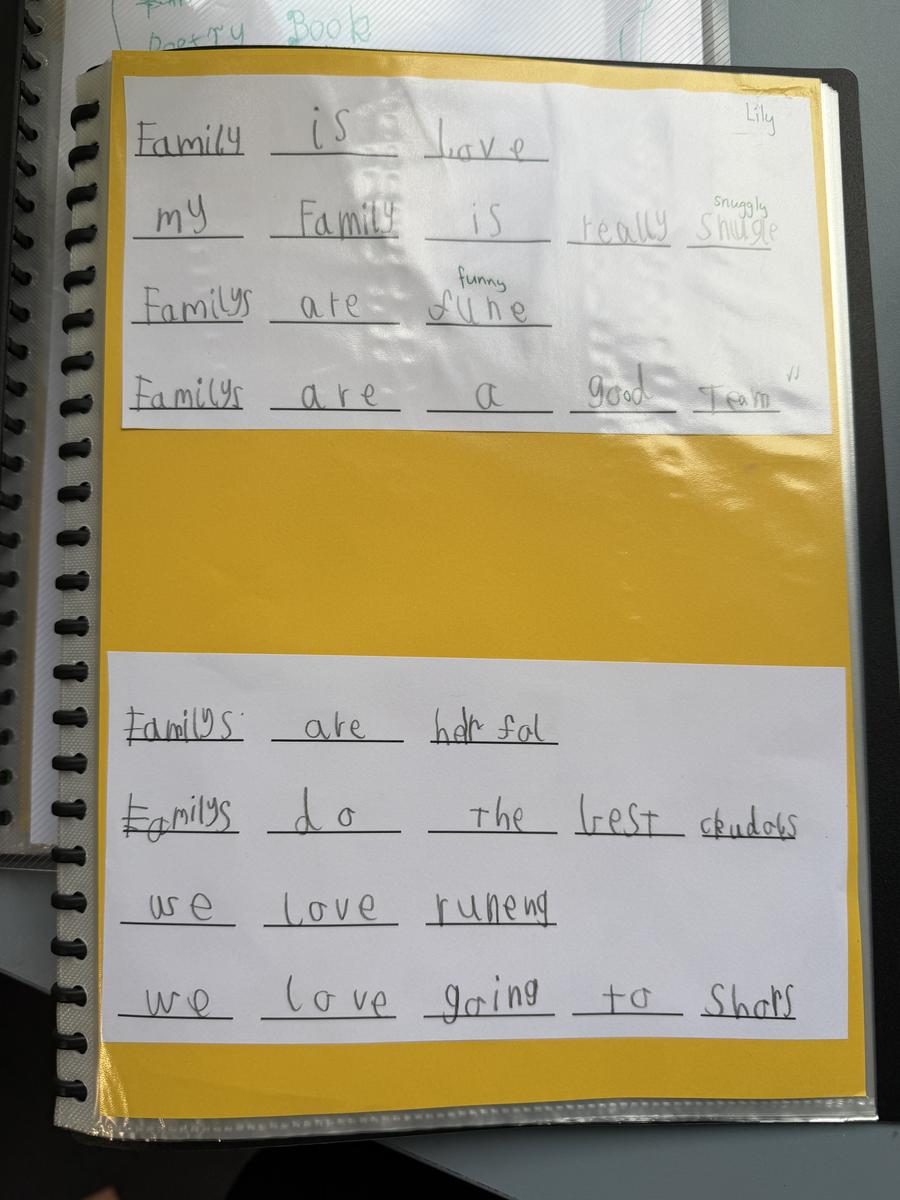 Poetry Book
Lily
Family is Love
snuggly
my Family is really Snugle
funny
Familys are fune
Familys are a good Team
Familys are
Familys do the best
we love runeng
we love going to Shops